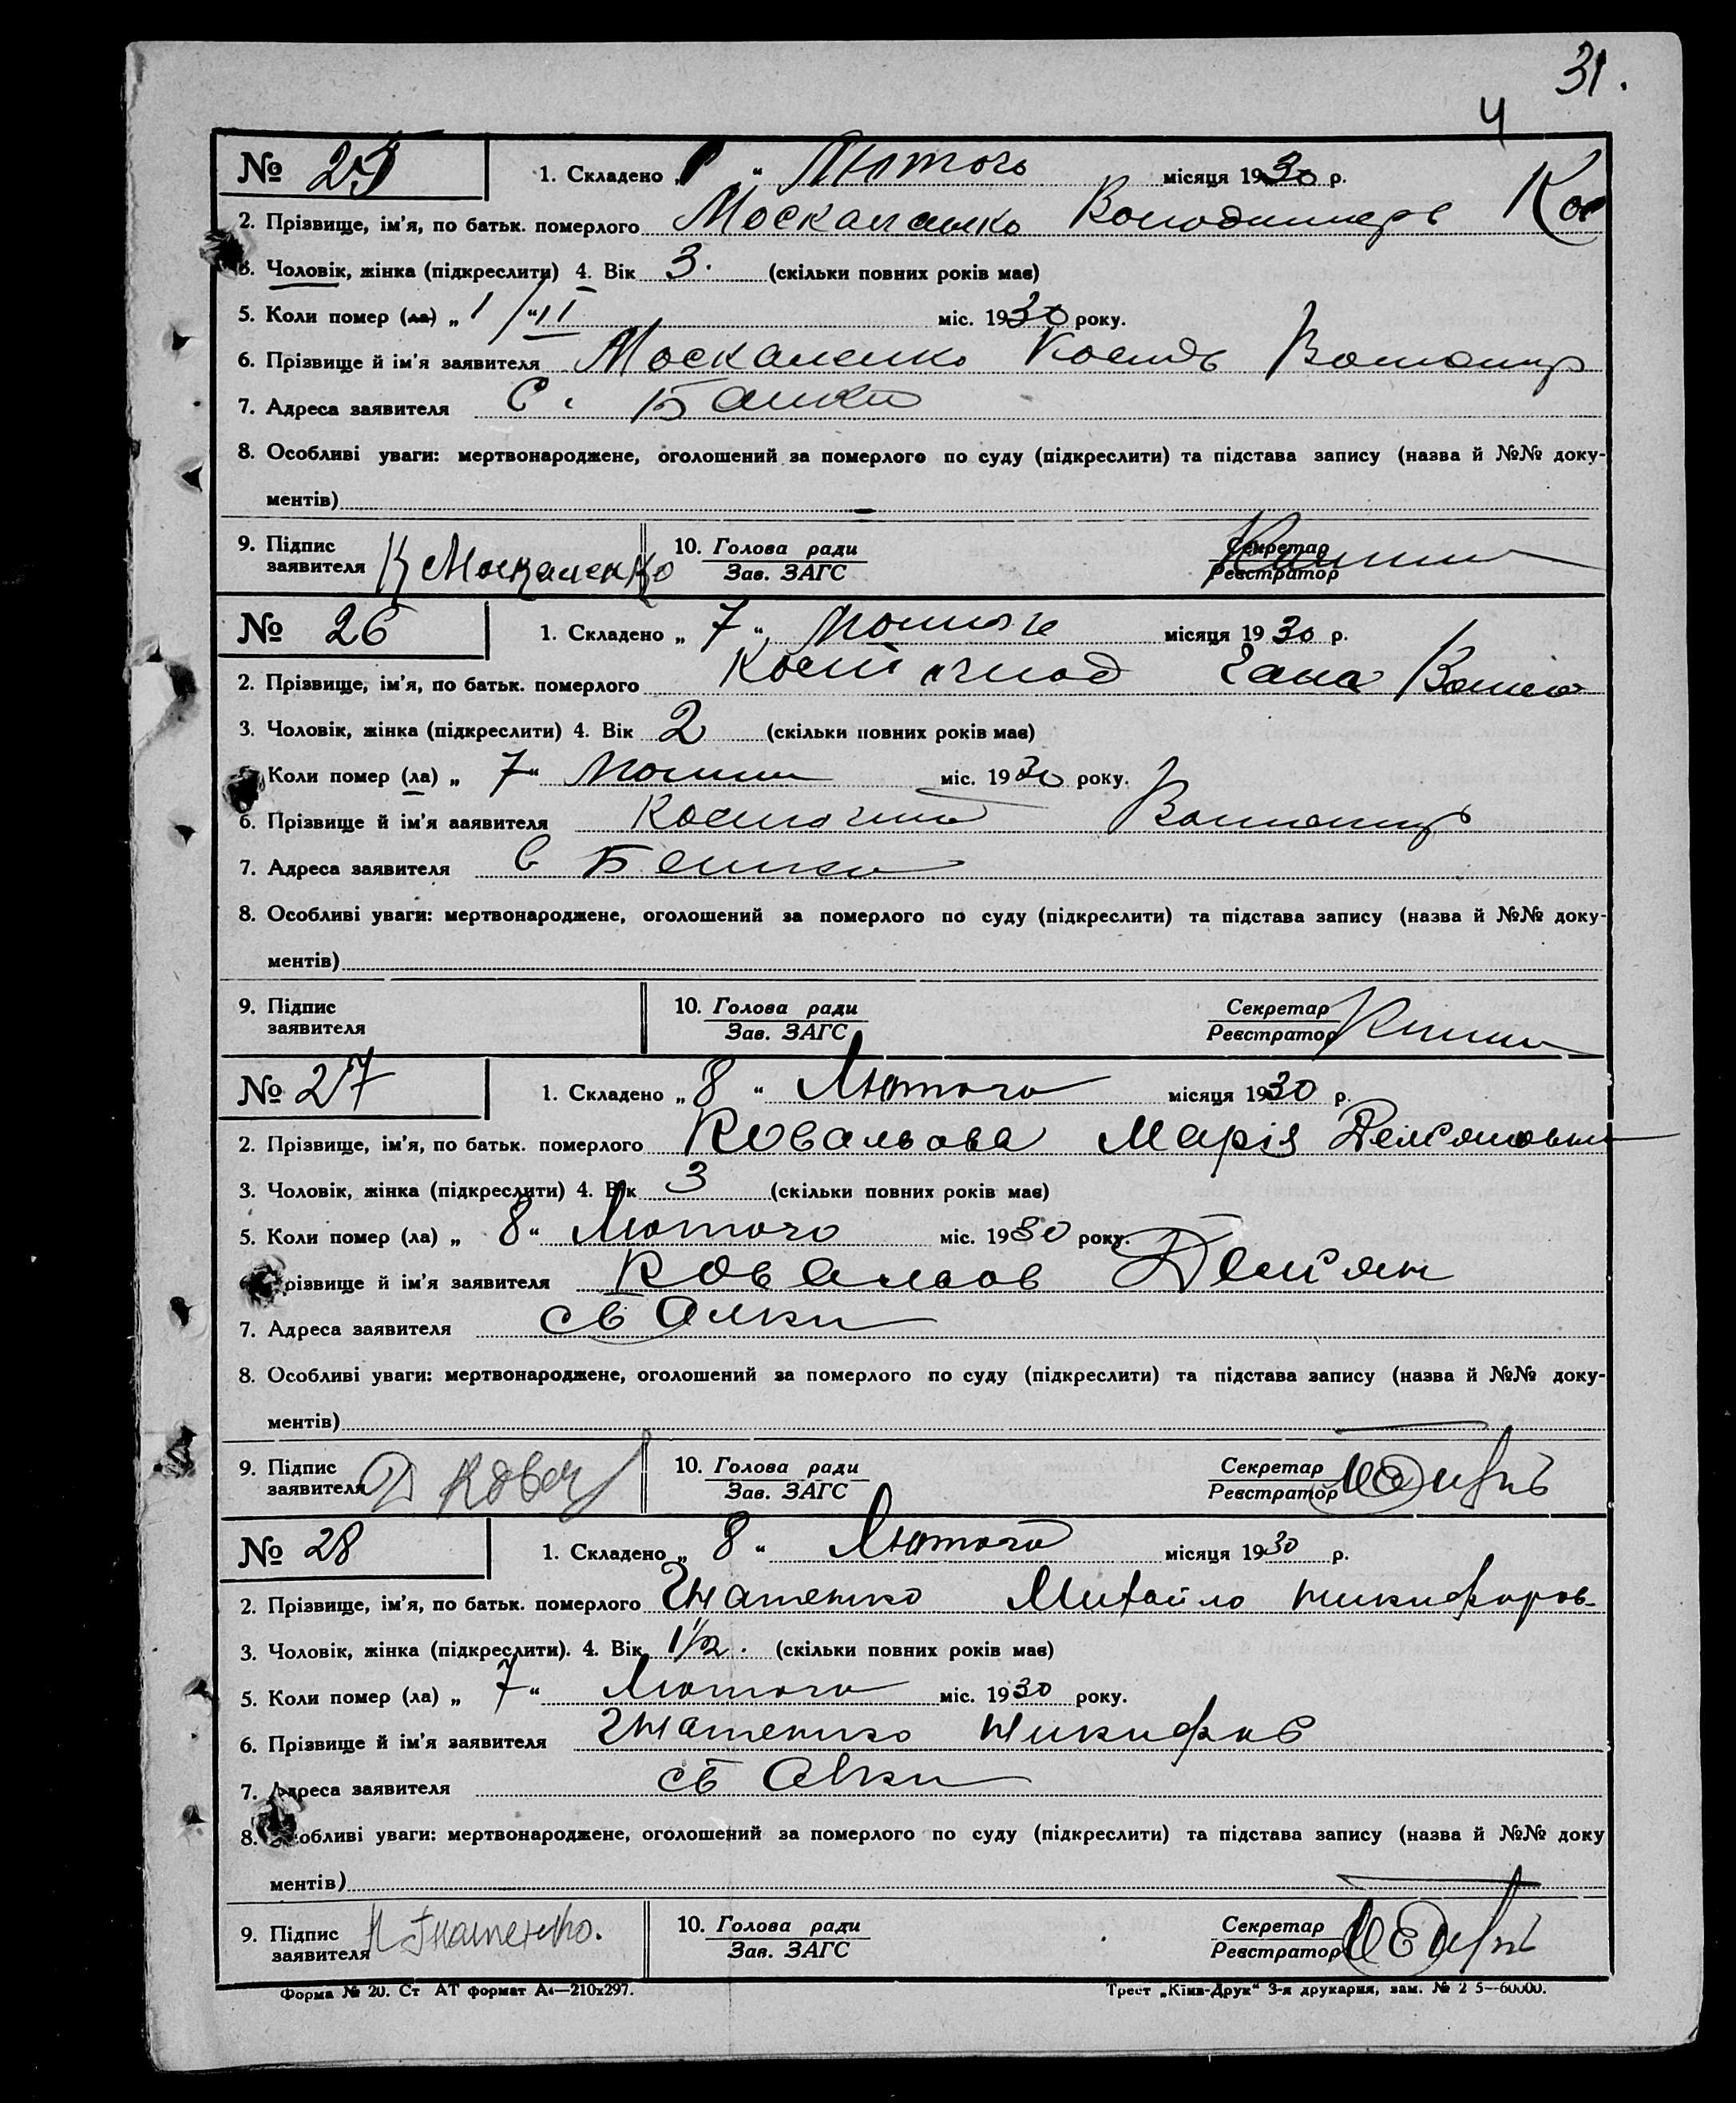 31.
4
№ 25 1. Складено „1“ Лютого місяця 1930 р.
2. Прізвище, ім'я, по батьк. померлого Москаленко Володимеръ Кос
3. Чоловік, жінка (підкреслити) 4. Вік 3. (скільки повних років має)
5. Коли помер (ла) „1/“II міс. 1930 року.
6. Прізвище й ім'я заявителя Москаленко
7. Адреса заявителя С. Балки
8. Особливі уваги: мертвонароджене, оголошений за померлого по суду (підкреслити) та підстава запису (назва й №№ доку-
ментів)
9. Підпис заявителя К Москаленко 10. Голова ради Секретар
Зав. ЗАГС Реєстратор
№ 26 1. Складено „7“ місяця 1930 р.
2. Прізвище, ім'я, по батьк. померлого
3. Чоловік, жінка (підкреслити) 4. Вік 2 (скільки повних років має)
Коли помер (ла) „7“ міс. 1930 року.
6. Прізвище й ім'я заявителя
7. Адреса заявителя С
8. Особливі уваги: мертвонароджене, оголошений за померлого по суду (підкреслити) та підстава запису (назва й №№ доку-
ментів)
9. Підпис заявителя 10. Голова ради Секретар
Зав. ЗАГС Реєстратор
№ 27 1. Складено „8“ Лютого місяця 1930 р.
2. Прізвище, ім'я, по батьк. померлого Ковальова Марія
3. Чоловік, жінка (підкреслити) 4. Вік 3 (скільки повних років має)
5. Коли помер (ла) „8“ Лютого міс. 1930 року.
різвище й ім'я заявителя Ковальов Демʼян
7. Адреса заявителя с Балки
8. Особливі уваги: мертвонароджене, оголошений за померлого по суду (підкреслити) та підстава запису (назва й №№ доку-
ментів)
9. Підпис заявителя Д Ковал 10. Голова ради Секретар
Зав. ЗАГС Реєстратор
№ 28 1. Складено „8“ Лютого місяця 1930 р.
2. Прізвище, ім'я, по батьк. померлого Гнатенко Михайло Никифоров-
3. Чоловік, жінка (підкреслити). 4. Вік 1½. (скільки повних років має)
5. Коли помер (ла) „7“ Лютого міс. 1930 року.
6. Прізвище й ім'я заявителя Гнатенко
7. Адреса заявителя с Балки
8. Особливі уваги: мертвонароджене, оголошений за померлого по суду (підкреслити) та підстава запису (назва й №№ доку
ментів)
9. Підпис заявителя Н Гнатенко. 10. Голова ради Секретар
Зав. ЗАГС Реєстратор
Форма № 20. Ст АТ формат А4—210х297. Трест „Київ-Друк“ 3-я друкарня, зам. № 2 5—60000.